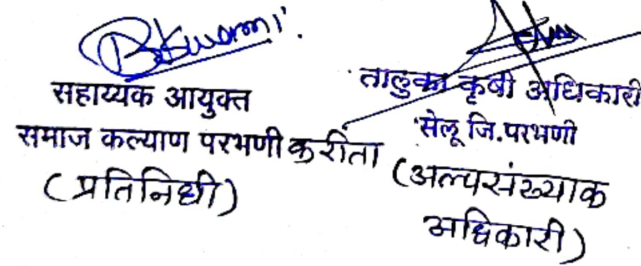 सहाय्यक आयुक्त
समाज कल्याण परभणी करीता
(प्रतिनिधी)
तालुका कृषी अधिकारी
सेलू जि.परभणी
(अल्पसंख्याक
अधिकारी)